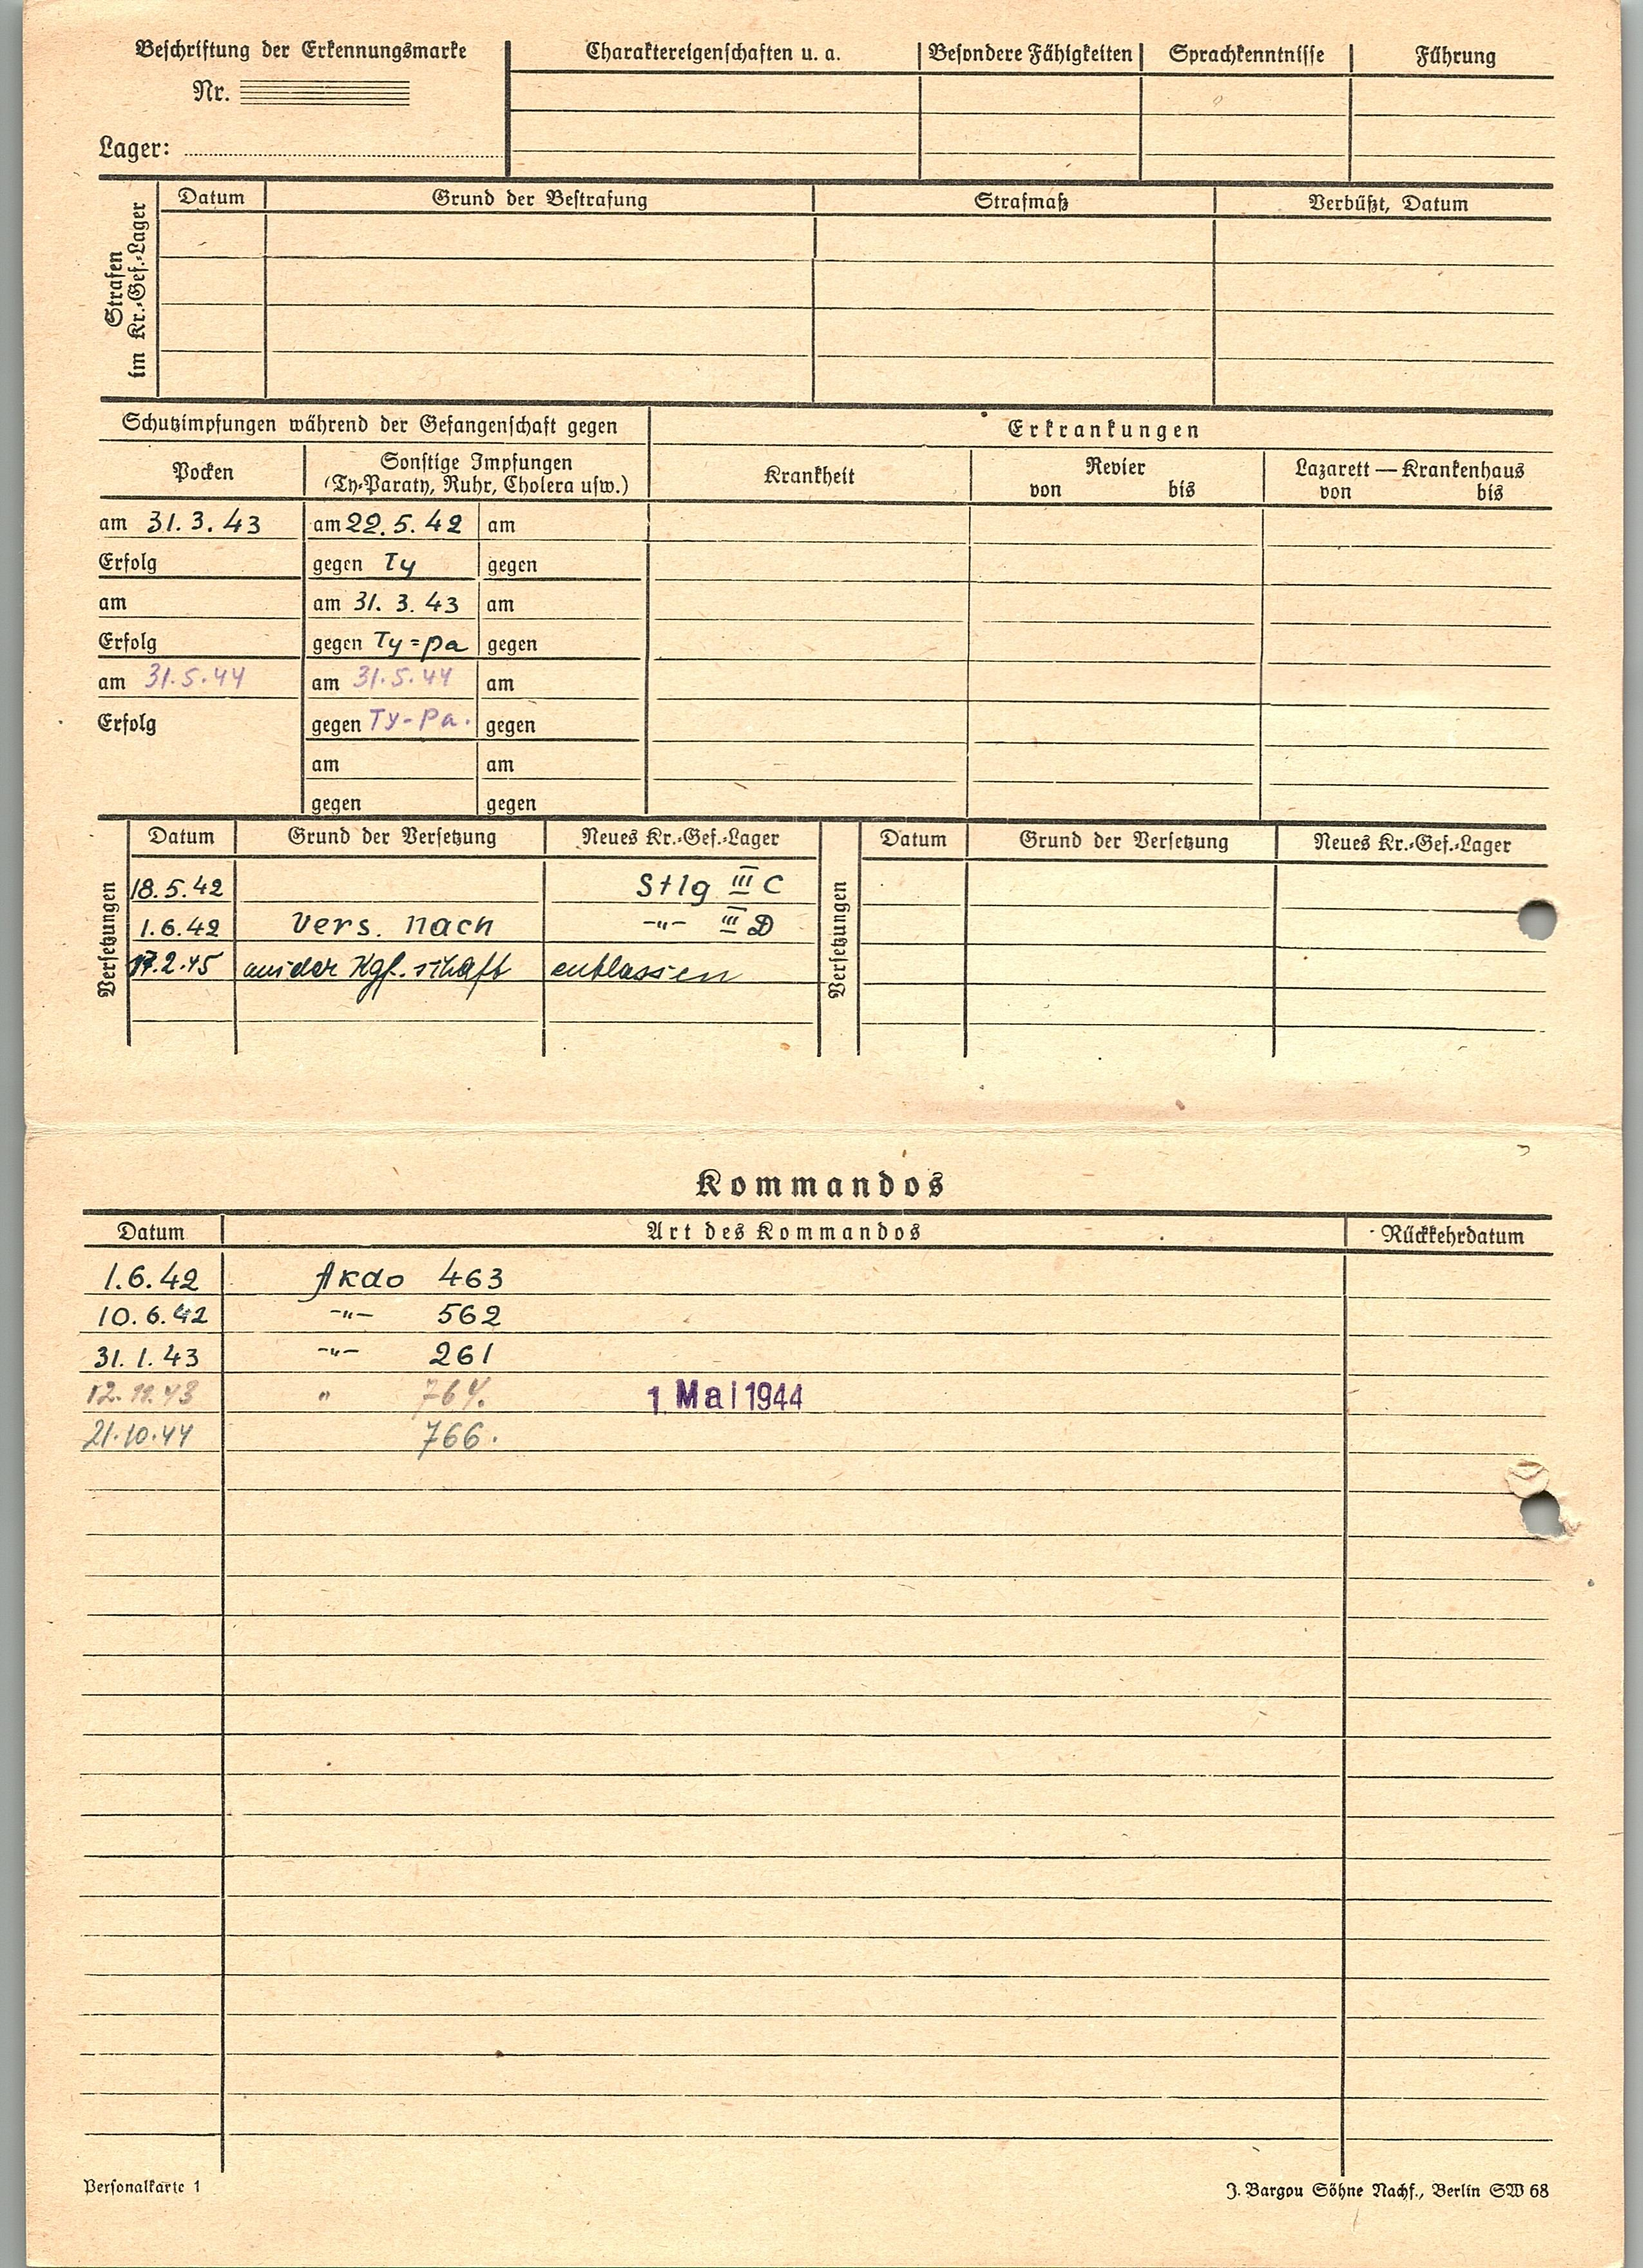 Beschriftung der Erkennungsmarke
Nr.
Lager:
Charaktereigenschaften u. a.
Besondere Fähigkeiten
Sprachkenntnisse
Führung
Strafen
im Kr.-Gef.-Lager
Datum
Grund der Bestrafung
Strafmaß
Verbüßt, Datum
Schutzimpfungen während der Gefangenschaft gegen
Erkrankungen
Pocken
Sonstige Impfungen
(Ty-Paraty, Ruhr, Cholera usw.)
Krankheit
Revier
von bis
Lazarett — Krankenhaus
von bis
am 31.3.43 am 22.5.42 am
Erfolg gegen Ty gegen
am am 31.3.43 am
Erfolg gegen Ty=pa gegen
am 31.5.44 am 31.5.44 am
Erfolg gegen Ty-Pa. gegen
am am
gegen gegen
Versetzungen
Datum Grund der Versetzung Neues Kr.-Gef.-Lager
18.5.42 Stlg III C
1.6.42 Vers. nach -"- III D
17.2.45 aus der Kgf.schaft entlassen
Versetzungen
Datum Grund der Versetzung Neues Kr.-Gef.-Lager
Kommandos
Datum Art des Kommandos Rückkehrdatum
1.6.42 Akdo 463
10.6.42 -"- 562
31.1.43 -"- 261
12.11.43 " 764. 1. Mai 1944
21.10.44 766.
Personalkarte 1
J. Bargou Söhne Nachf., Berlin SW 68